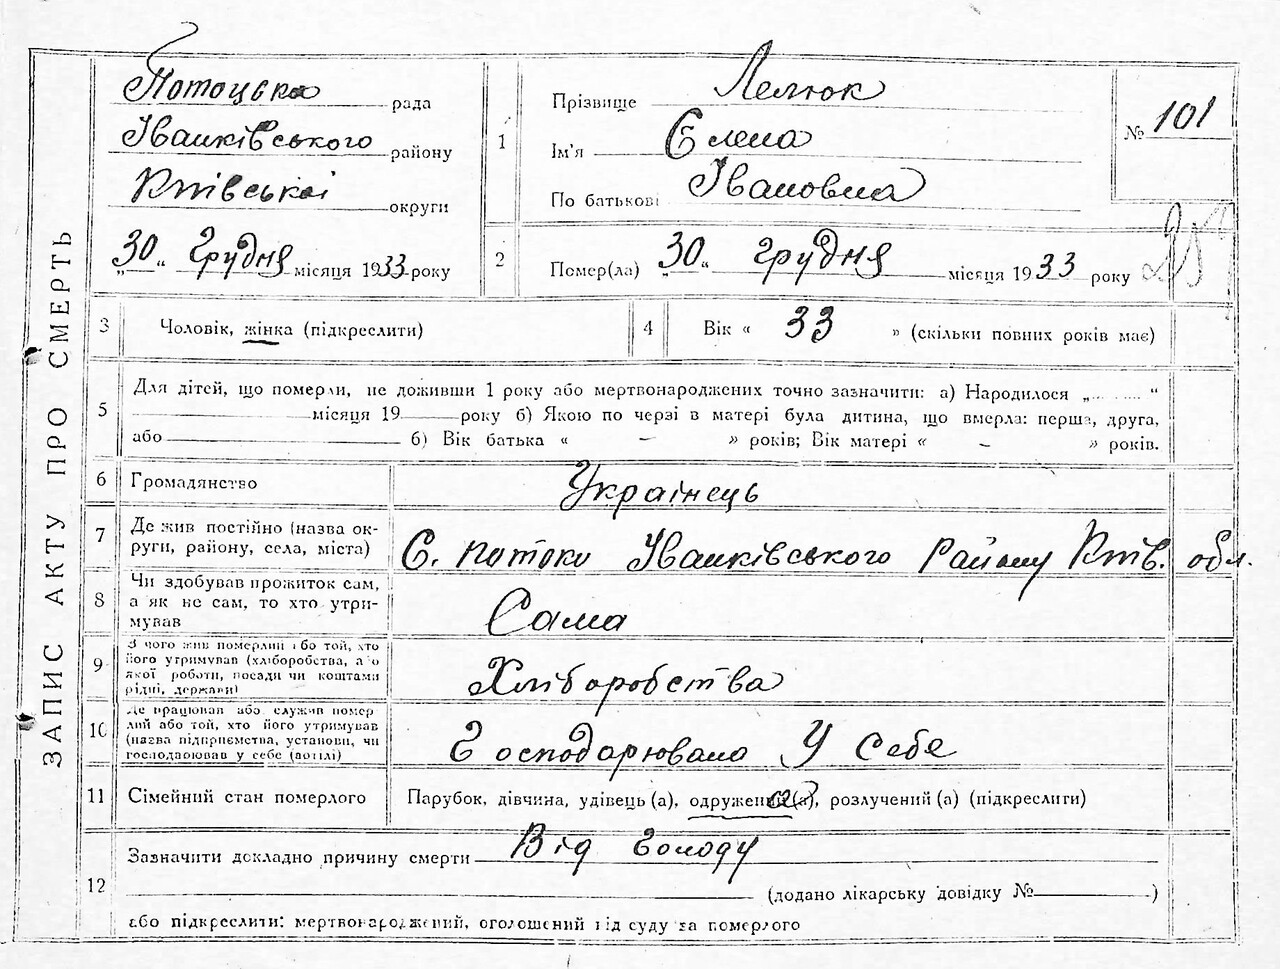 ЗАПИС АКТУ ПРО СМЕРТЬ
Потоцька рада
Іванківського району
Київської округи
„30“ Грудня місяця 1933 року
1
Прізвище Лелюк
Ім'я Єлена
По батькові Івановна
№ 101
2
Помер(ла) „30“ грудня місяця 1933 року
3 Чоловік, жінка (підкреслити)
4 Вік « 33 » (скільки повних років має)
5
Для дітей, що померли, не доживши 1 року або мертвонароджених точно зазначити: а) Народилося „......... “
місяця 19 року б) Якою по черзі в матері була дитина, що вмерла: перша, друга,
або б) Вік батька « – » років; Вік матері « – » років.
6 Громадянство Українець
7 Де жив постійно (назва ок-
руги, району, села, міста) С. Потоки Іванківського Району Київ. обл.
8 Чи здобував прожиток сам,
а як не сам, то хто утри-
мував Сама
9 З чого жив померлий або той, хто
його утримував (хліборобства, а о
якої роботи, посади чи коштами
рідні, держави) Хліборобства
10 Де працював або служив помер
лий або той, хто його утримував
(назва підприємства, установи, чи
господарював у себе Господарювала У себе
11 Сімейний стан померлого Парубок, дівчина, удівець (а), одружений (а), розлучений (а) (підкреслити)
12
Зазначити докладно причину смерти Від голоду
(додано лікарську довідку № )
або підкреслити: мертвонароджений, оголошений від суду за померлого